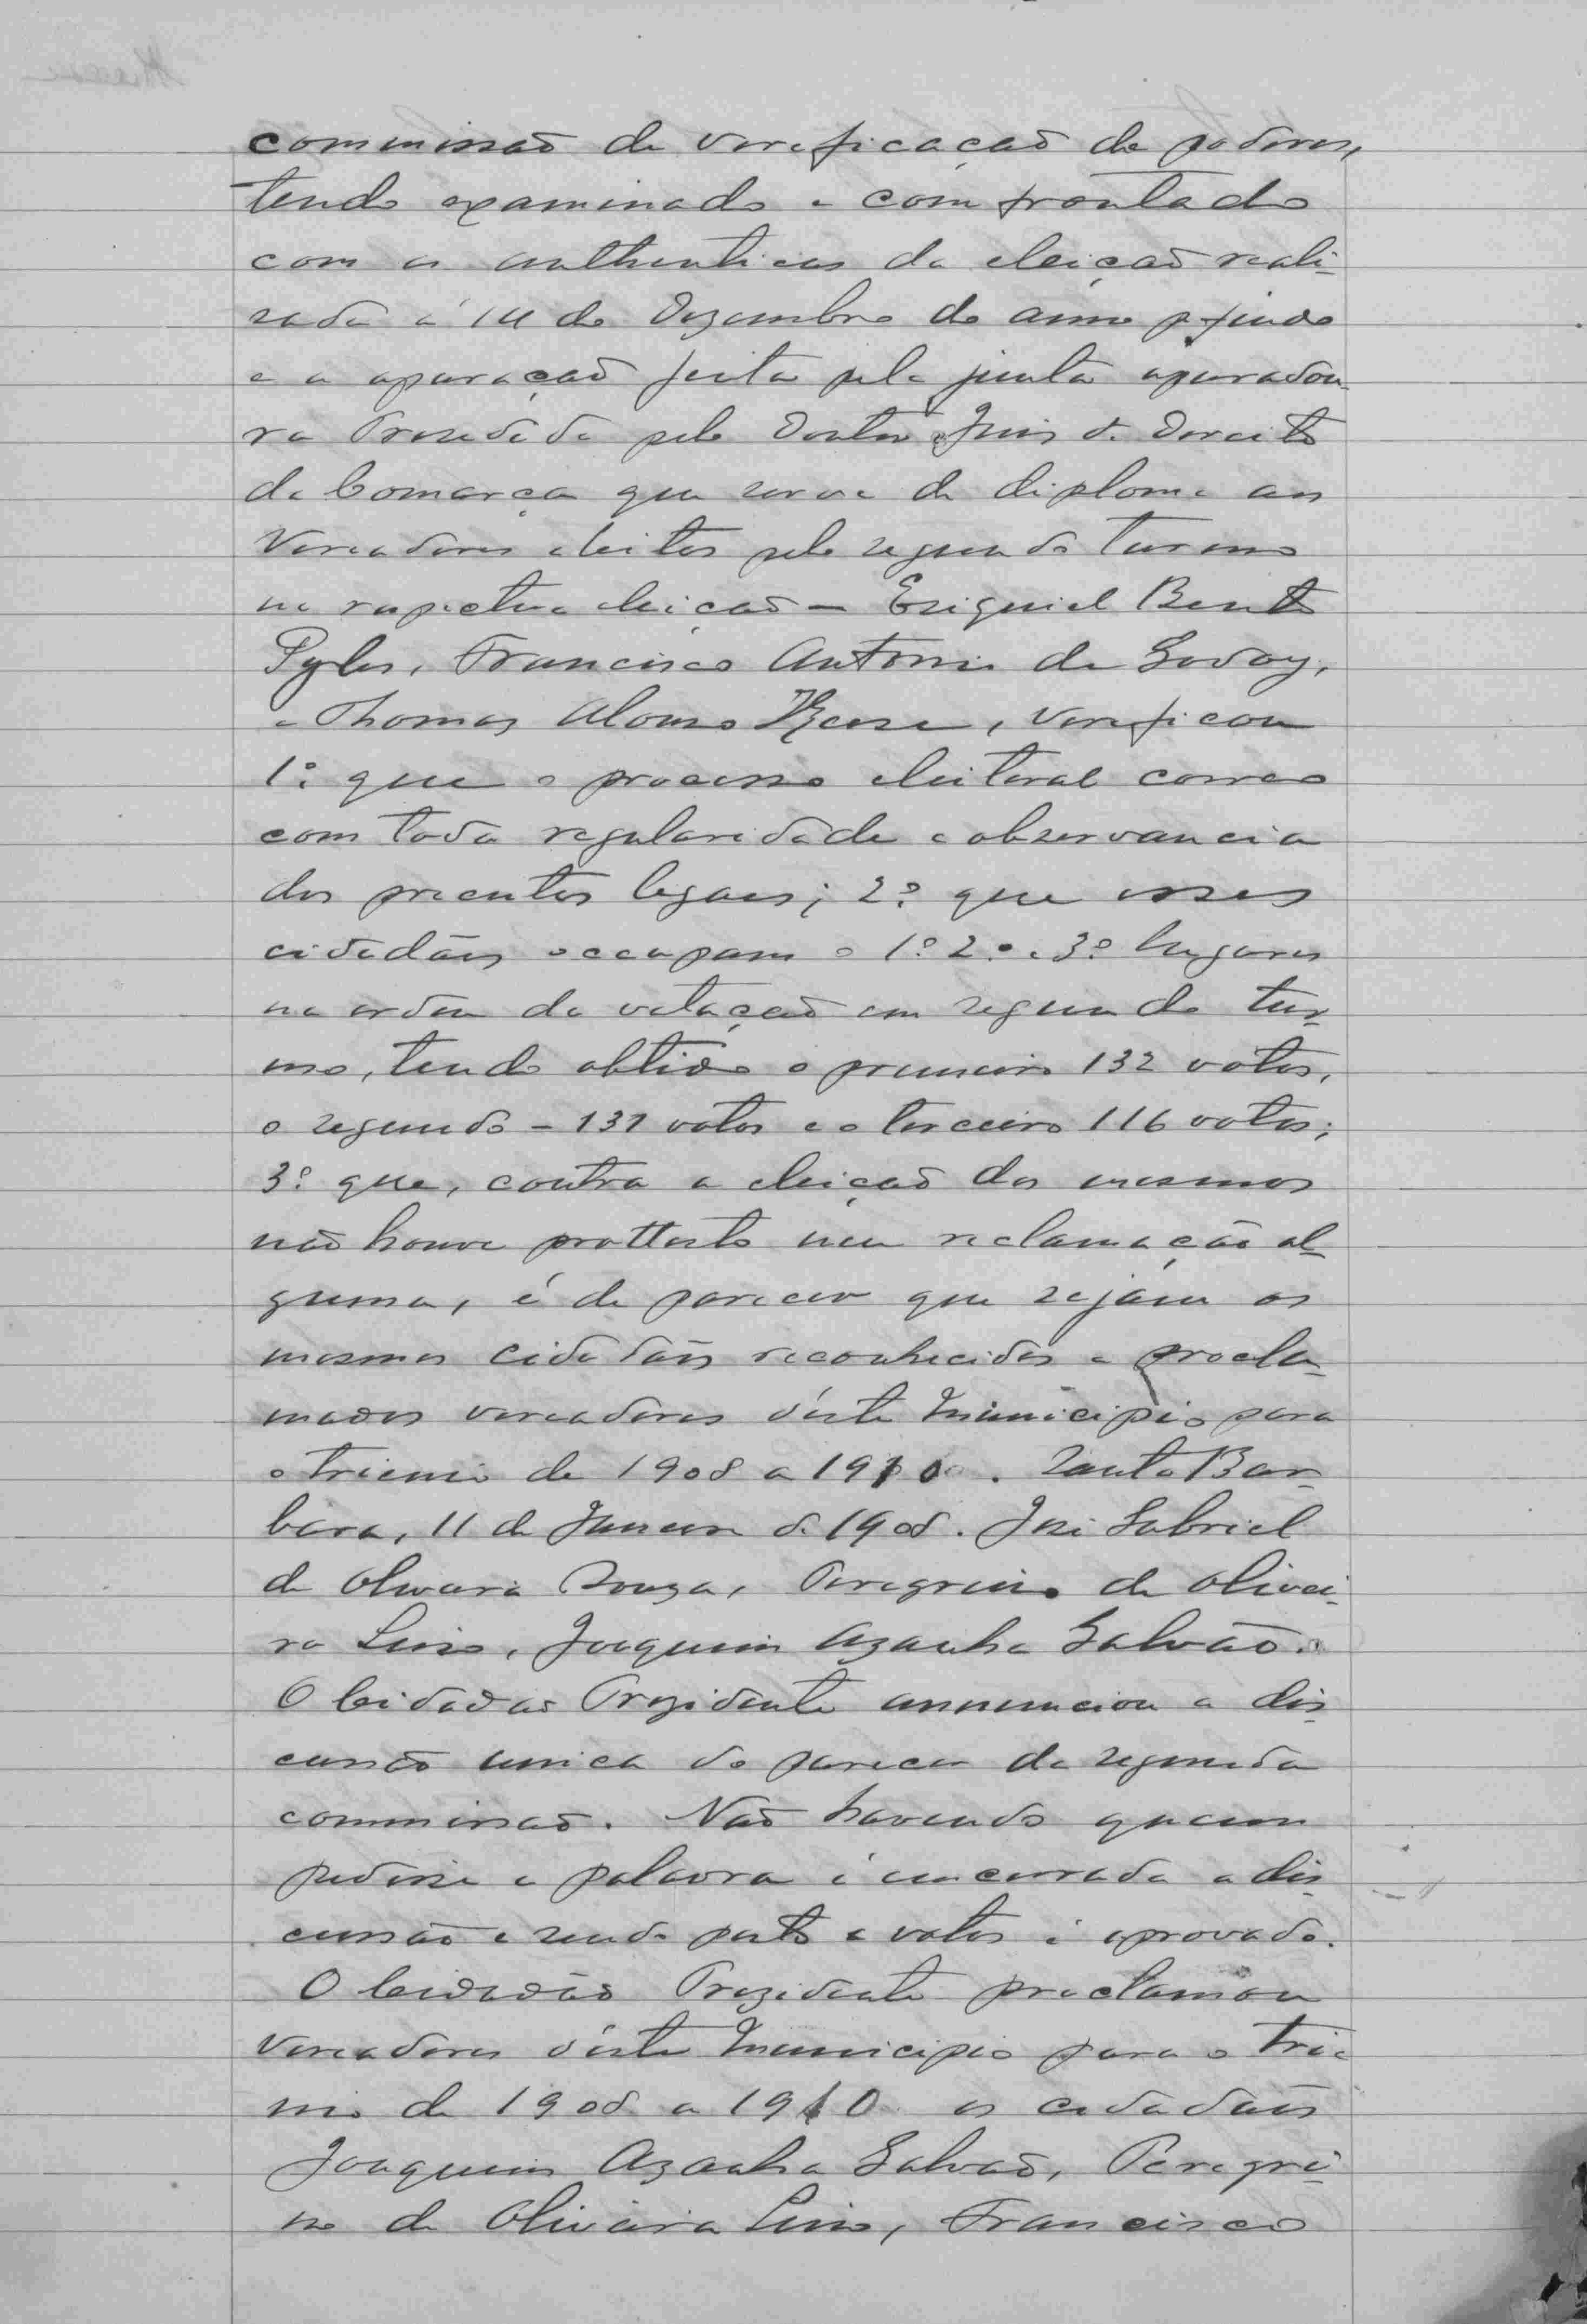 commissaõ de verificaçaõ de poderes,
tendo examinado e comfrontado
com as authenticas da eleiçaõ reali-
zada á 14 de Dezembro do anno p. findo
e a apuraçaõ feita pela junta apuradou-
ra Prezedida pelo Doutor Juis de Dereito
da Comarca que serve de diploma aos
Vereadores eleitos pelo segundo turno
na respectiva eleiçaõ — Ezequiel Bento
Pyles, Francisco Antonio de Godoy,
e Thomas Alonso Keese, verificou
1º que o processo eleitoral correo
com toda regularidade e observancia
dos preceitos legaes; 2º que esses
cidadãos occupam o 1º 2º e 3º lugares
na ordem da votaçaõ em segundo tur-
no, tendo obtido o primeiro 132 votos,
o segundo - 131 votos e o terceiro 116 votos;
3º que, contra a eleiçaõ dos mesmos
naõ houve prottesto nem reclamação al-
guma, é de parecer que sejam os
mesmos cidadãos reconhecidos e procla-
mados vereadores d'éste Municipio para
o triennio de 1908 a 1910. Santa Bar-
bara, 11 de Janeiro de 1908. José Gabriel
de Oliveira Souza, Peregrino de Olivei-
ra Lino, Joaquim Azanha Galvão.
O Cidadaõ Prezidente annunciou a dis-
cussão unica do parecer da segunda
commissaõ. Naõ havendo quem
pedisse a palavra é encerrada a dis-
cussão e sendo posto a votos é aprovado.
O Cidadão Prezidente proclamou
Vereadores d'éste Municipio para o trie-
nio de 1908 a 1910 os cidadãos
Joaquim Azanha Galvaõ, Peregri-
no de Oliveira Lino, Francisco